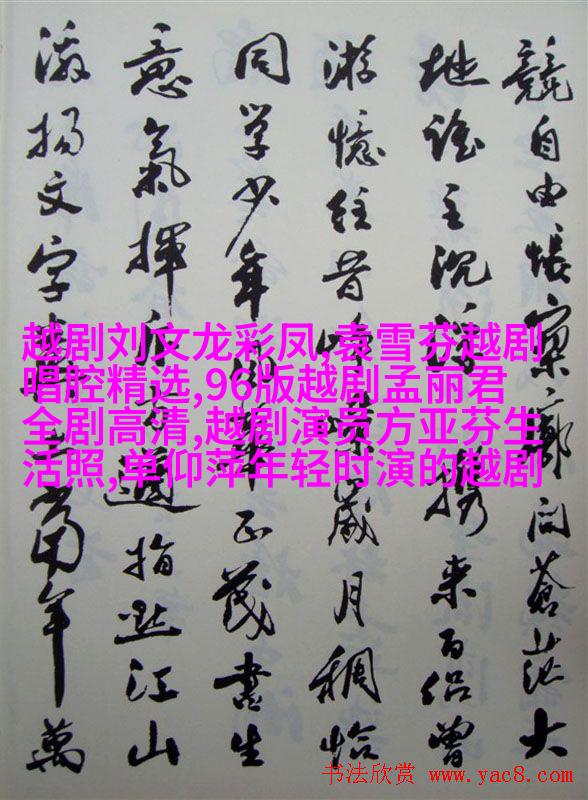 競自由悵寥廓問蒼茫大
地誰主沉浮攜來百侶曾
游憶往昔崢嶸歲月稠恰
同學少年風華正茂書生
意氣揮斥方遒指點江山
激揚文字糞土當年萬
越剧刘文龙彩凤,袁雪芬越剧
唱腔精选,96版越剧孟丽君
全剧高清,越剧演员方亚芬生
活照,单仰萍年轻时演的越剧
书法欣赏
www.yac8.com